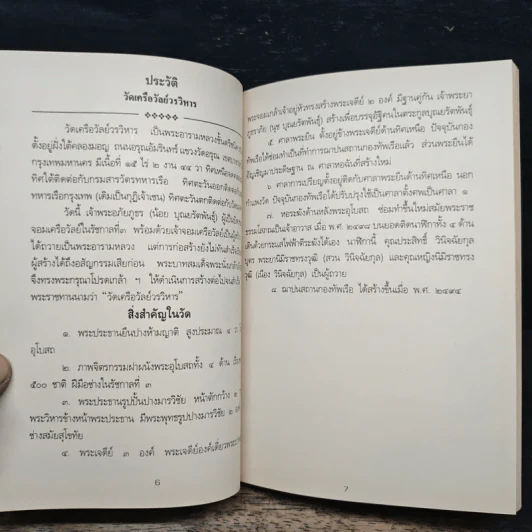 ประวัติ
วัดเครือวัลย์วรวิหาร
วัดเครือวัลย์วรวิหาร เป็นพระอารามหลวงชั้นตรี
ตั้งอยู่ฝั่งใต้คลองมอญ ถนนอรุณอัมรินทร์ แขวงวัดอรุณ
กรุงเทพมหานคร มีเนื้อที่ ๑๕ ไร่ ๒ งาน
ทิศใต้ติดต่อกับกรมสารวัตรทหารเรือ ทิศตะวันออกติดต่อ
ทหารเรือกรุงเทพ (เดิมเป็นกุฏิเจ้าเซน) ทิศตะวันตกติดต่อกับ
วัดนี้ เจ้าพระยาอภัยภูธร (น้อย บุณยรัตพันธุ์)
จอมเครือวัลย์ในรัชกาลที่๓ พร้อมด้วยเจ้าจอมเครือวัลย์
ได้ถวายเป็นพระอารามหลวง แต่การก่อสร้างยังไม่ทัน
ผู้สร้างได้ถึงอสัญกรรมเสียก่อน พระบาทสมเด็จพระนั่งเกล้า
จึงทรงพระกรุณาโปรดเกล้า ฯ ให้ดำเนินการสร้างต่อไป
พระราชทานนามว่า "วัดเครือวัลย์วรวิหาร"
สิ่งสำคัญในวัด
๑. พระประธานยืนปางห้ามญาติ สูงประมาณ ๔
อุโบสถ
๒. ภาพจิตรกรรมฝาผนังพระอุโบสถทั้ง ๔ ด้าน
๕๐๐ ชาติ ฝีมือช่างในรัชกาลที่ ๓
๓. พระประธานรูปปั้นปางมารวิชัย หน้าตักกว้าง ๒
พระวิหารข้างหน้าพระประธาน มีพระพุทธรูปปางมารวิชัย ๒
ช่างสมัยสุโขทัย
๔. พระเจดีย์ ๓ องค์ พระเจดีย์องค์เดี่ยว
6
พระจอมเกล้าเจ้าอยู่หัวทรงสร้างพระเจดีย์ ๒ องค์ มีฐานคู่กัน เจ้าพระยา
ภูธราภัย (นุช บุณยรัตพันธุ์) สร้างเพื่อบรรจุอัฐิคนในตระกูลบุณยรัตพันธุ์
๕. ศาลาพระยืน ตั้งอยู่ข้างพระเจดีย์ด้านทิศเหนือ ปัจจุบันกอง
ทัพเรือได้ซ่อมทำเป็นที่ทำการฌาปนสถานกองทัพเรือแล้ว ส่วนพระยืนได้
อัญเชิญมาประดิษฐาน ณ ศาลาหอฉันที่สร้างใหม่
๖. ศาลาการเปรียญตั้งอยู่ติดกับศาลาพระยืนด้านทิศเหนือ นอก
กำแพงวัด ปัจจุบันกองทัพเรือได้ปรับปรุงใช้เป็นศาลาตั้งศพเป็นศาลา ๑
๗. หอระฆังด้านหลังพระอุโบสถ ซ่อมทำขึ้นใหม่สมัยพระราช
เป็นเจ้าอาวาส เมื่อ พ.ศ. ๒๔๙๔ บนยอดติดนาฬิกาทั้ง ๔ ด้าน
เดินด้วยกระแสไฟฟ้าตีระฆังได้เอง นาฬิกานี้ คุณประสิทธิ์ วินิจฉัยกุล
บุตร พระยานิมิราชทรงวุฒิ (สวน วินิจฉัยกุล) และคุณหญิงนิมิราชทรง
วุฒิ (เนื่อง วินิจฉัยกุล) เป็นผู้ถวาย
๘. ฌาปนสถานกองทัพเรือ ได้สร้างขึ้นเมื่อ พ.ศ. ๒๔๙๔
7